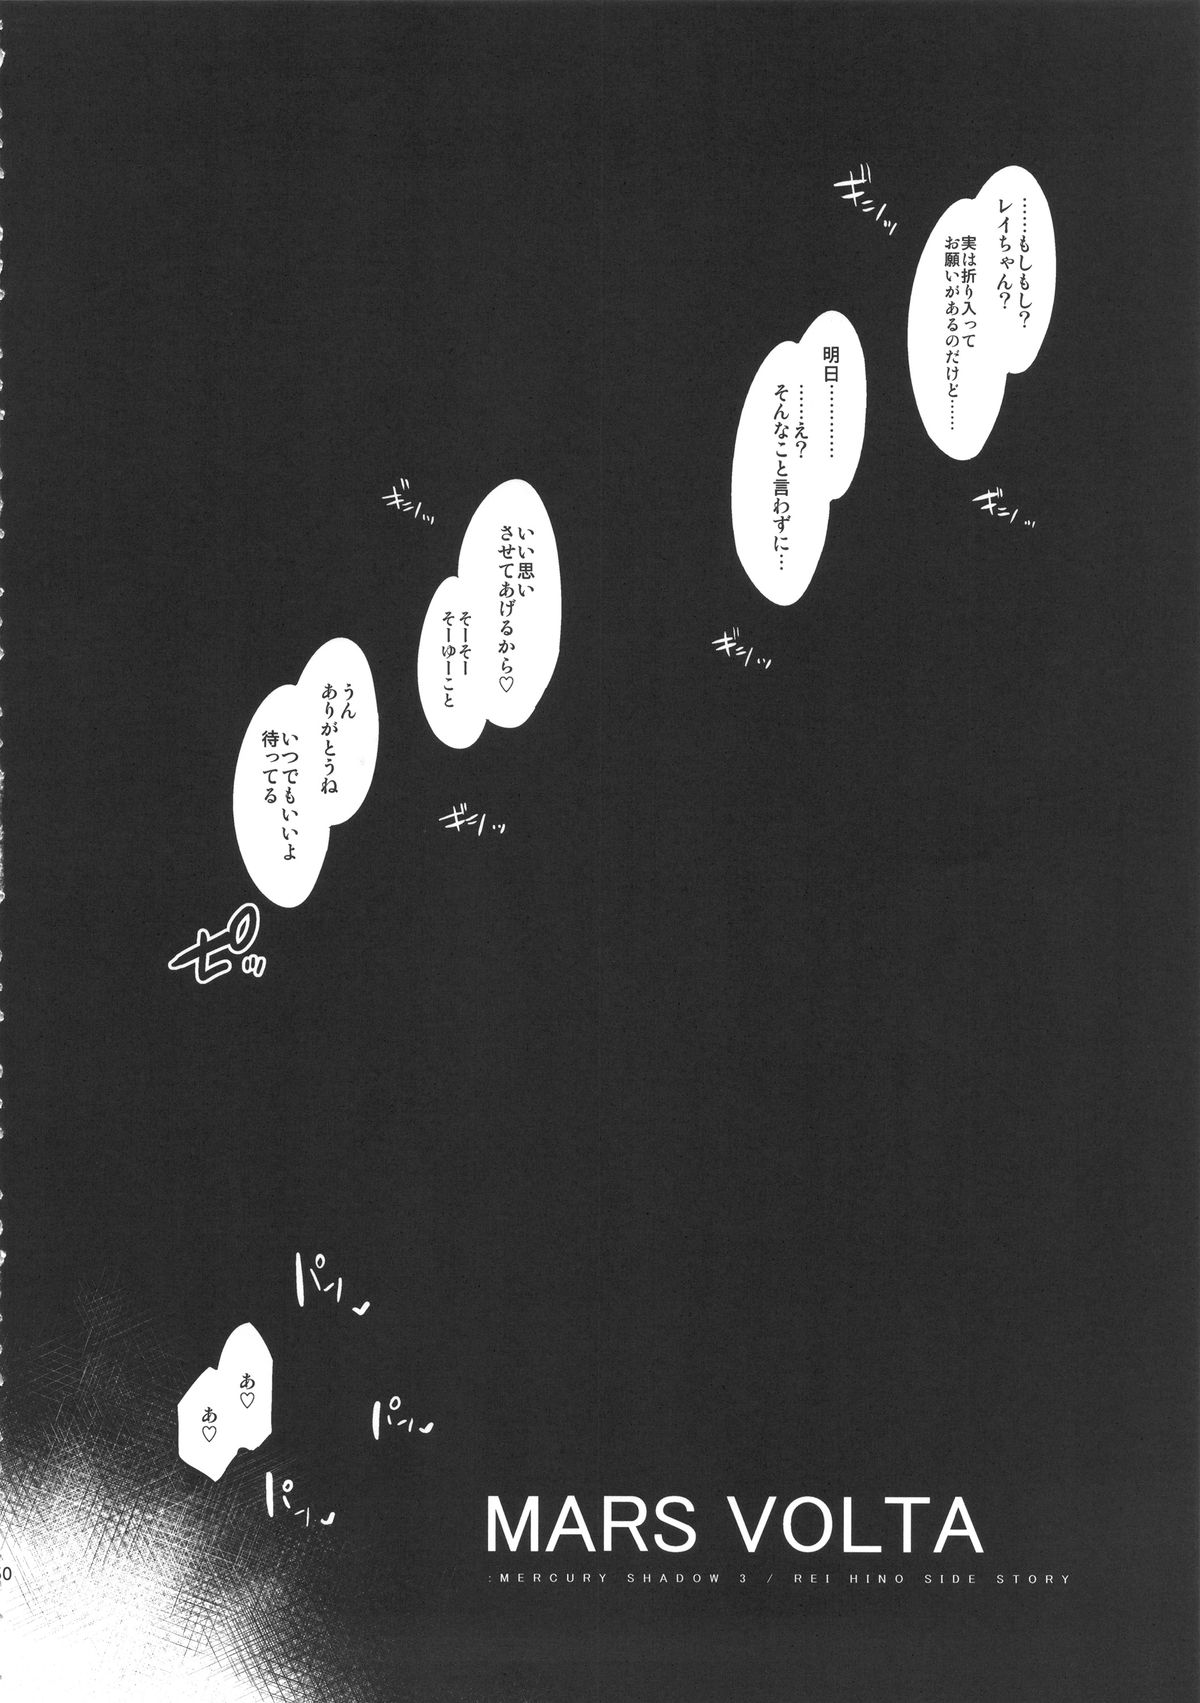 ……もしもし?
レイちゃん?
実は折り入って
お願いがあるのだけど……
ギシッ
ギシッ
明日…………
……え?
そんなこと言わずに…
ギシッ
いい思い
させてあげるから♡
そーそー
そーゆーこと
ギシッ
ギシッ
うん
ありがとうね
いつでもいいよ
待ってる
ピッ
パンッ
あ♡
あ♡
パンッ
パンッ
MARS VOLTA
:MERCURY SHADOW 3 / REI HINO SIDE STORY